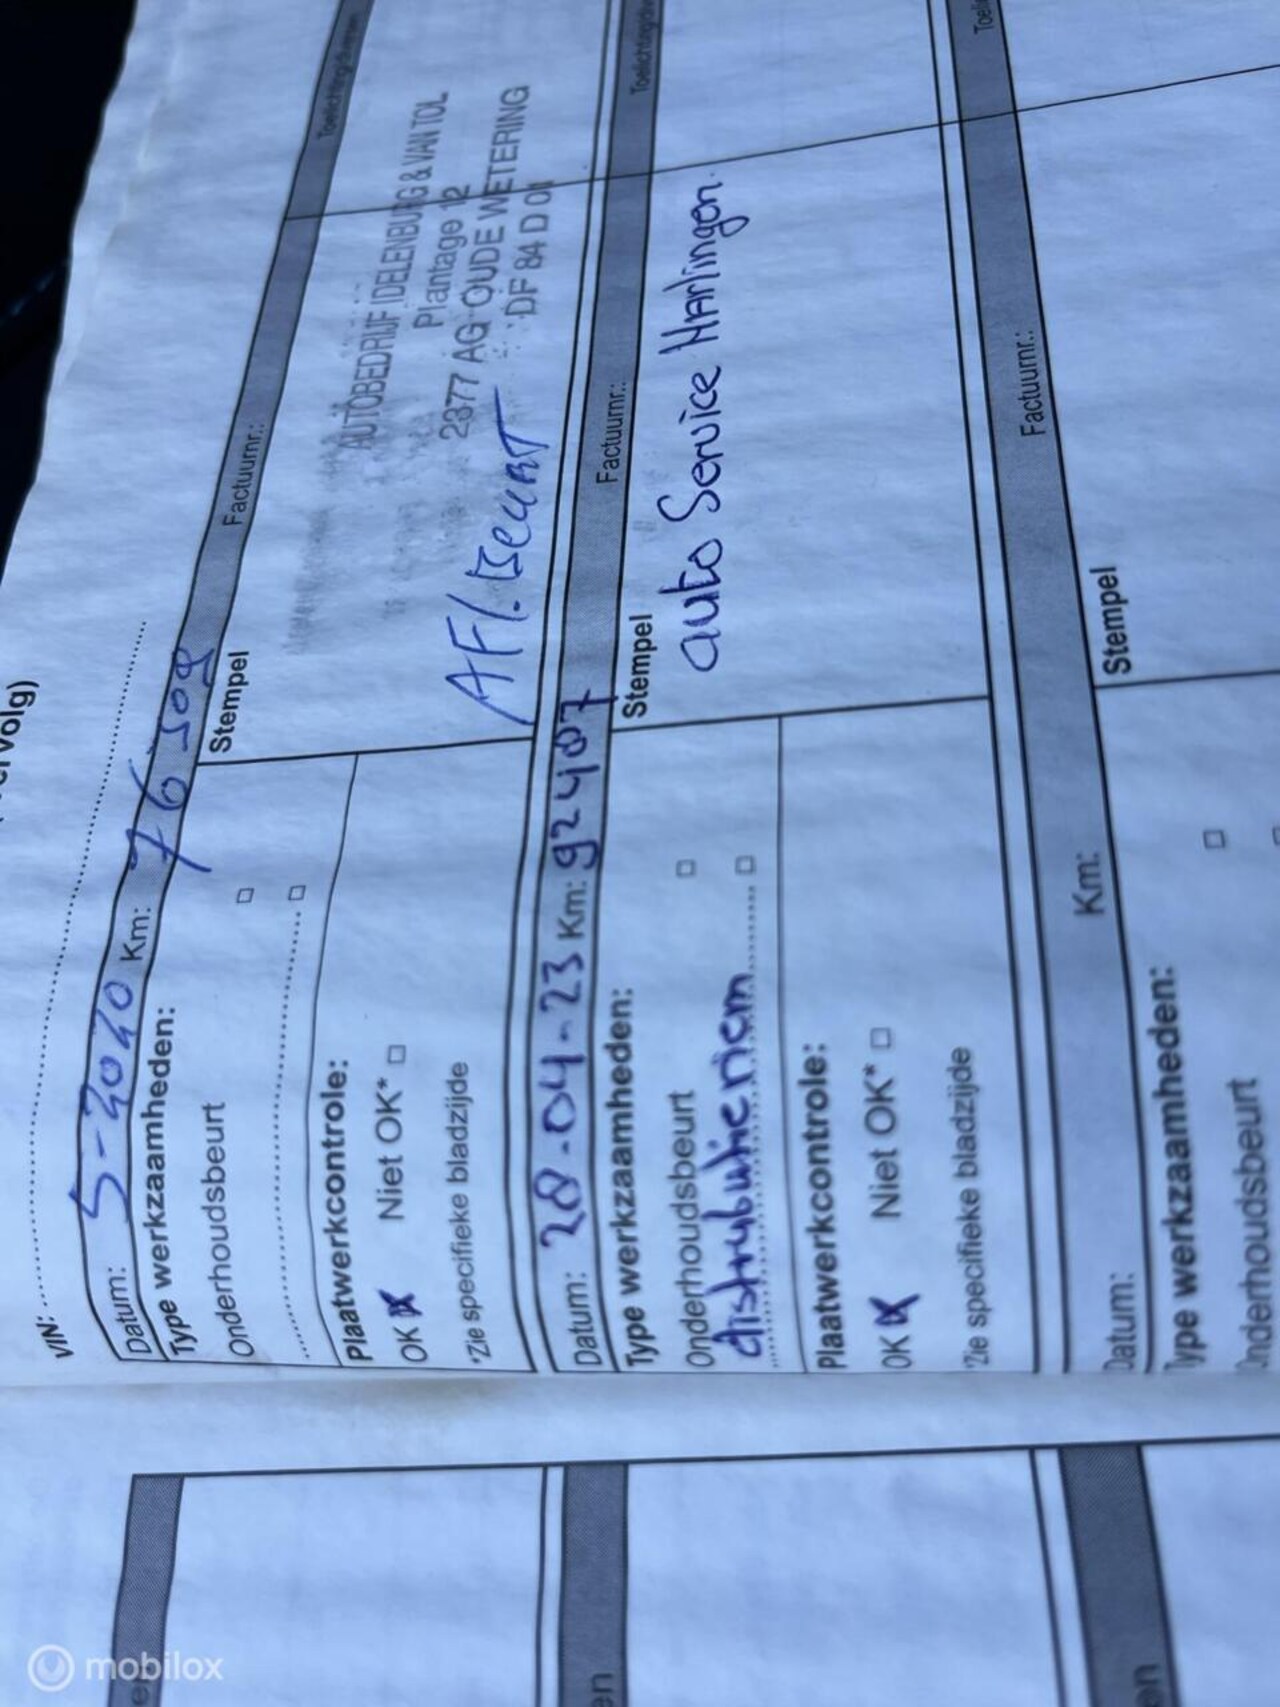 (vervolg)
VIN:
Datum: 5-2020 Km: 76509 Factuurnr.:
Type werkzaamheden:
Onderhoudsbeurt
Plaatwerkcontrole:
OK Niet OK*
*Zie specifieke bladzijde
Stempel
AUTOBEDRIJF IDELENBURG & VAN TOL
Plantage 12
2377 AG OUDE WETERING
DF 84 D 01
AFl. Beurt
Datum: 28-04-23 Km: 92407 Factuurnr.:
Type werkzaamheden:
Onderhoudsbeurt
distrubutie riem
Plaatwerkcontrole:
OK Niet OK*
*Zie specifieke bladzijde
Stempel
auto Service Harlingen.
Datum: Km: Factuurnr.:
Type werkzaamheden:
Onderhoudsbeurt
Stempel
en
en
en
mobilox